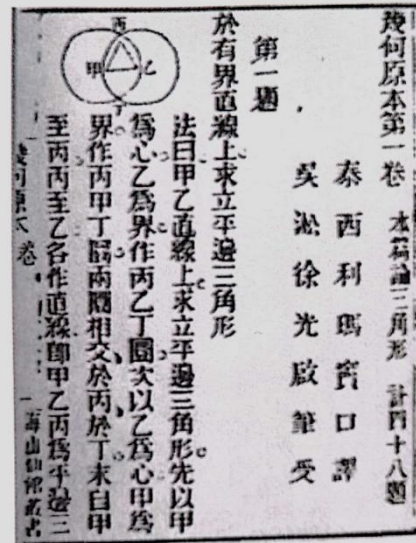 幾何原本第一卷 本篇論三角形 計四十八題
泰西利瑪竇口譯
吳淞徐光啟筆受
第一題
於有界直線上求立平邊三角形
法曰甲乙直線上求立平邊三角形先以甲
為心乙為界作丙乙丁圜次以乙為心甲為
界作丙甲丁圜兩圜相交於丙於丁末自甲
至丙丙至乙各作直線卽甲乙丙為平邊三
丙
甲
乙
丁
幾何原本 卷一
海山仙館叢書